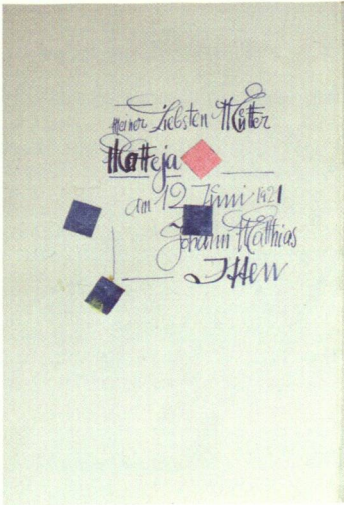 Meiner Liebsten Mutter
Matteja
am 12 Juni 1921
Johann Matthias
Itten